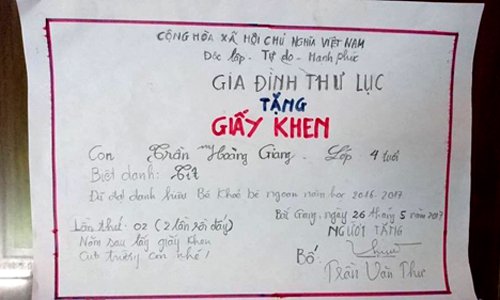 CỘNG HÒA XÃ HỘI CHỦ NGHĨA VIỆT NAM
Độc lập - Tự do - Hạnh phúc
GIA ĐÌNH THƯ LỤC
TẶNG
GIẤY KHEN
Con Trần Hoàng Giang. Lớp 4 tuổi
Biệt danh: Tít
Đã đạt danh hiệu Bé Khoẻ bé ngoan năm học 2016-2017
Bắc Giang, ngày 26 tháng 5 năm 2017
Lần thứ: 02 (2 lần rồi đấy)
NGƯỜI TẶNG
Năm sau lấy giấy khen
Bố:
của trường con nhé!
Trần Văn Thư